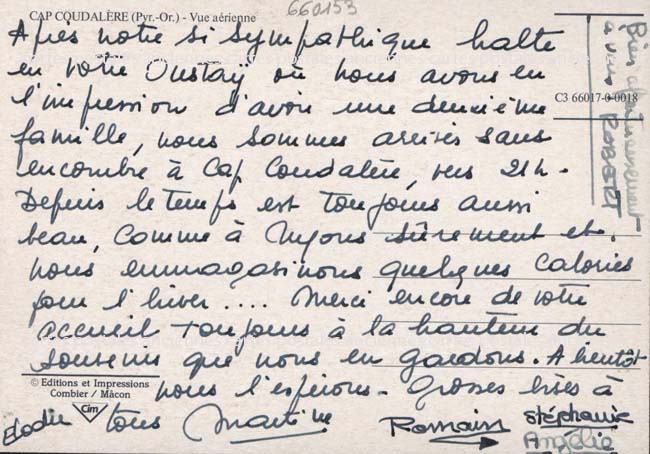 CAP COUDALÈRE (Pyr.-Or.) - Vue aérienne
660153
Après notre si sympathique halte
en votre Oustay où nous avons eu
l'impression d'avoir une deuxième
famille, nous sommes arrivés sans
encombre à Cap Coudalère, vers 21h.
Depuis le temps est toujours aussi
beau, comme à Nyons sûrement et
nous emmagasinons quelques calories
pour l'hiver.... Merci encore de votre
accueil toujours à la hauteur du
souvenir que nous en gardons. A bientôt
nous l'espérons. Grosses bises à
tous Martine Romain Stéphanie
Elodie Angélie
Bien
à vous ROBERT
C3 66017-0-0018
© Editions et Impressions
Combier / Mâcon
Cim